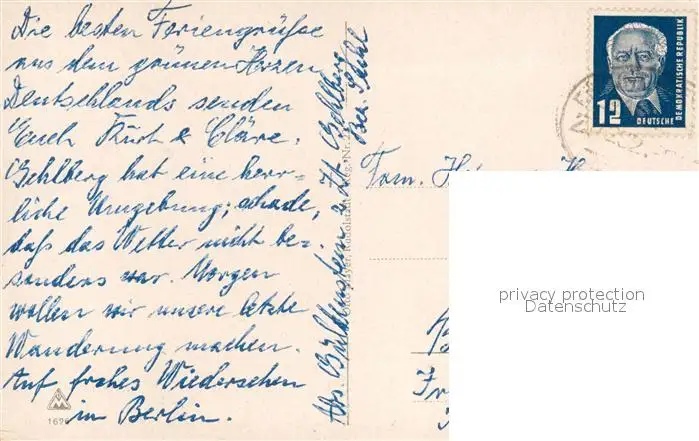 Die besten Feriengrüße
aus dem grünen Herzen
Deutschlands senden
Euch Kurt & Cläre.
Gehlberg hat eine herr-
liche Umgebung; schade,
daß das Wetter nicht be-
sonders war. Morgen
wollen wir unsere letzte
Wanderung machen.
Auf frohes Wiedersehen
in Berlin.
Abs. z. Zt. Gehlberg
Bez. Suhl
Fam.
12
DEUTSCHE
DEMOKRATISCHE REPUBLIK
privacy protection
Datenschutz